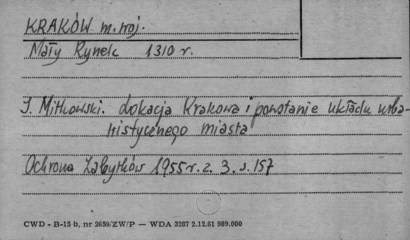 KRAKÓW m. woj.
Mały Rynek 1310 r.
J. Mitkowski. Lokacja Krakowa i powstanie układu urba-
nistycznego miasta
Ochrona Zabytków 1955 r. z. 3. s. 157
CWD - B-15 b, nr 2659/ZW/P — WDA 3287 2.12.61 989.000